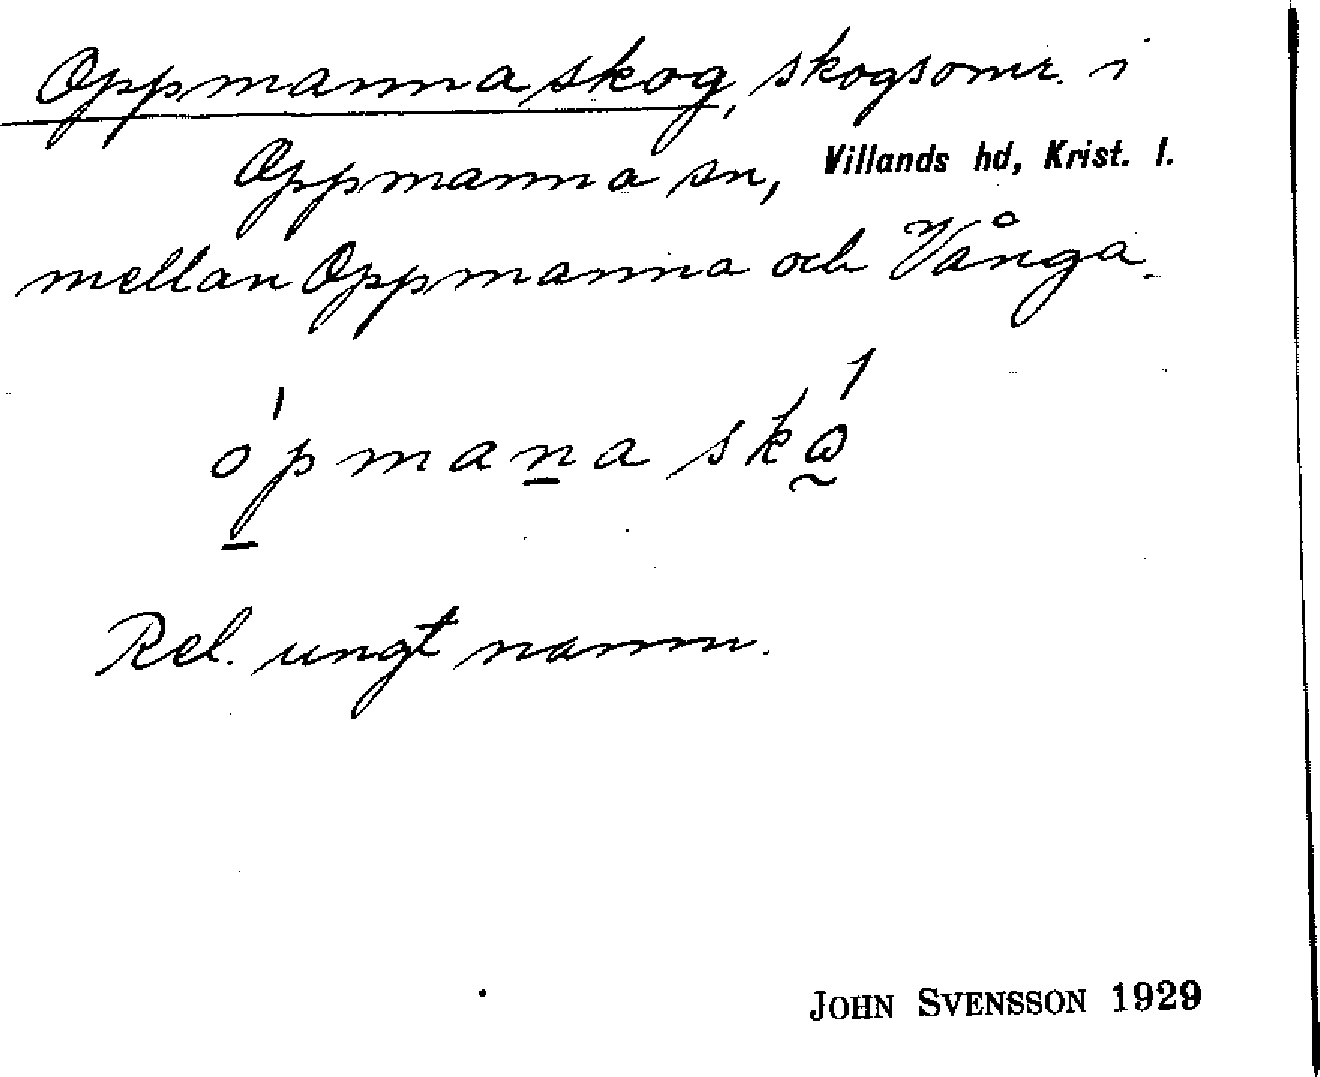 Oppmanna skog, skogsomr. i
Oppmanna sn, Villands hd, Krist. l.
mellan Oppmanna och Vånga.
ópmana skɷ́
Rel. ungt namn.
JOHN SVENSSON 1929